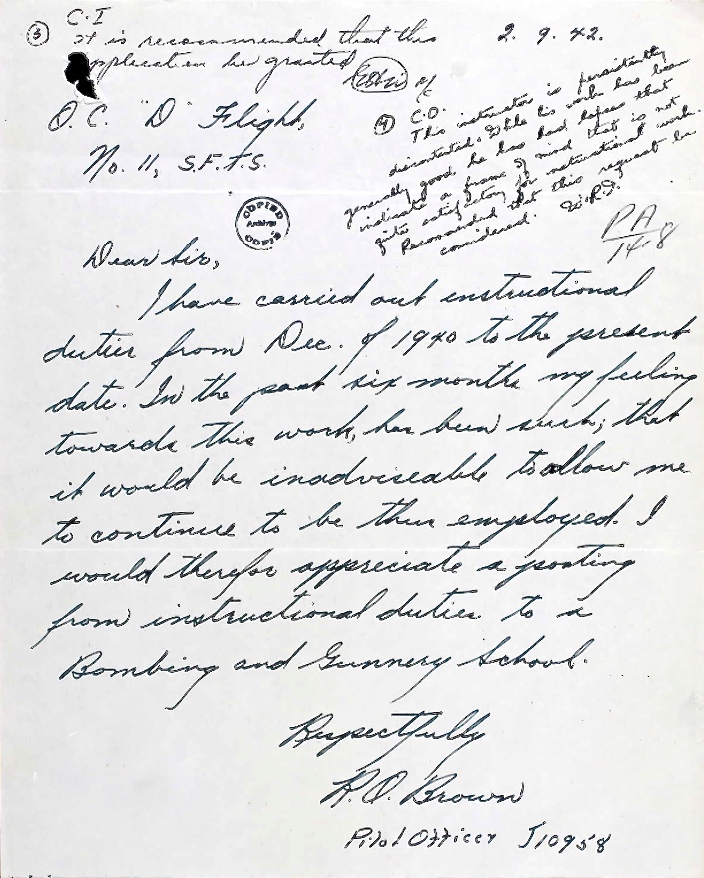 ③ C.I
It is recommended that this
application be granted
2. 9. 42.
④ C.O.
This instructor is persistently
discontented. While his work has been
generally good he has had lapses that
indicate a frame of mind that is not
quite satisfactory for instructional work.
Recommended that this request be
considered.
O.C. "D" Flight,
No. 11, S.F.T.S.
COPIED
Archives
COPIÉ
PA
14-8
Dear Sir,
I have carried out instructional
duties from Dec. of 1940 to the present
date. In the past six months my feeling
towards this work, has been such; that
it would be inadviseable to allow me
to continue to be thus employed. I
would therefor appreciate a posting
from instructional duties to a
Bombing and Gunnery School.
Respectfully
R.O. Brown
Pilot Officer J10958